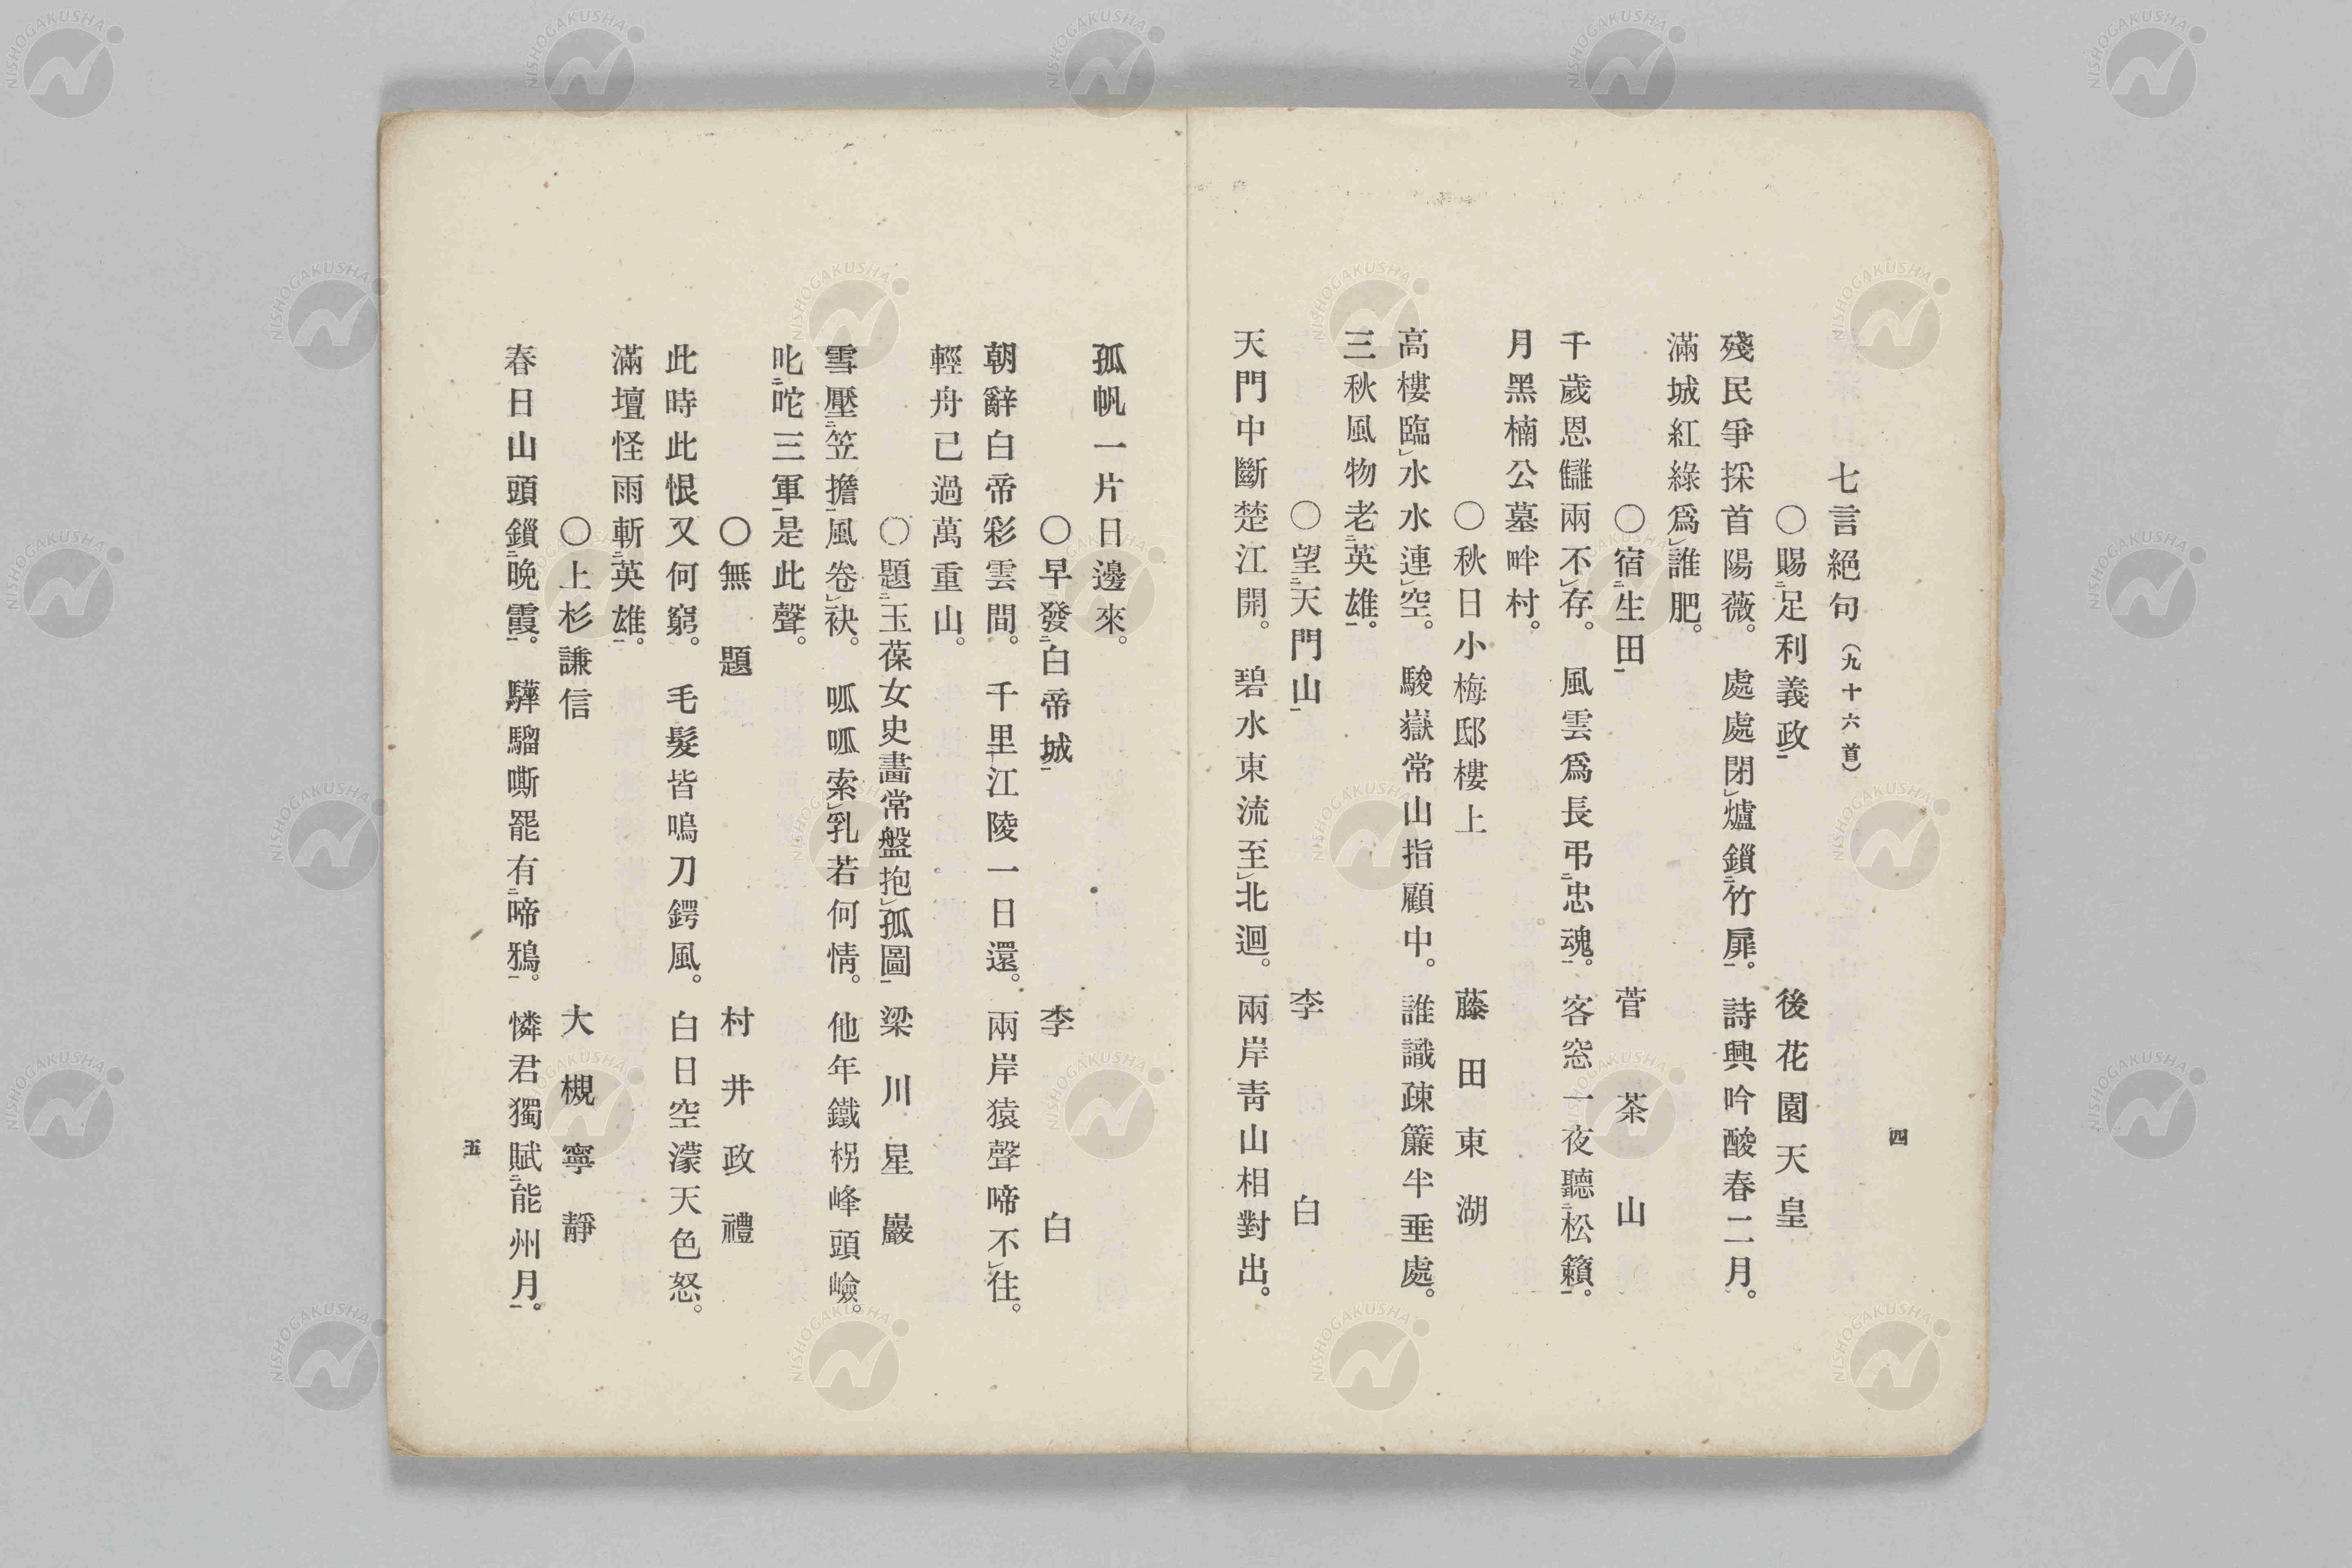 七言絕句（九十六首）
〇賜㆓足利義政㆒　後花園天皇
殘民爭採首陽薇。處處閉㆑爐鎖㆓竹扉㆒。詩興吟酸春二月。
滿城紅綠爲㆑誰肥。
〇宿㆓生田㆒　菅茶山
千歲恩讎兩不㆑存。風雲爲長弔㆓忠魂㆒。客窓一夜聽㆓松籟㆒。
月黑楠公墓畔村。
〇秋日小梅邸樓上　藤田東湖
高樓臨㆑水水連㆑空。駿嶽常山指顧中。誰識疎簾半垂處。
三秋風物老㆓英雄㆒。
〇望㆓天門山㆒　李白
天門中斷楚江開。碧水東流至㆑北迴。兩岸靑山相對出。
四
孤帆一片日邊來。
〇早發㆓白帝城㆒　李白
朝辭白帝彩雲間。千里江陵一日還。兩岸猿聲啼不㆑住。
輕舟已過萬重山。
〇題㆘玉葆女史畵常盤抱㆑孤圖㆒　梁川星巖
雪壓㆓笠擔㆒風卷㆑袂。呱呱索㆑乳若何情。他年鐵柺峰頭嶮。
叱㆓咜三軍㆒是此聲。
〇無題　村井政禮
此時此恨又何窮。毛髮皆鳴刀鍔風。白日空濛天色怒。
滿壇怪雨斬㆓英雄㆒。
〇上杉謙信　大槻寧靜
春日山頭鎖㆓晩霞㆒。驊騮嘶罷有㆓啼鴉㆒。憐君獨賦㆓能州月㆒。
五
NISHOGAKUSHA